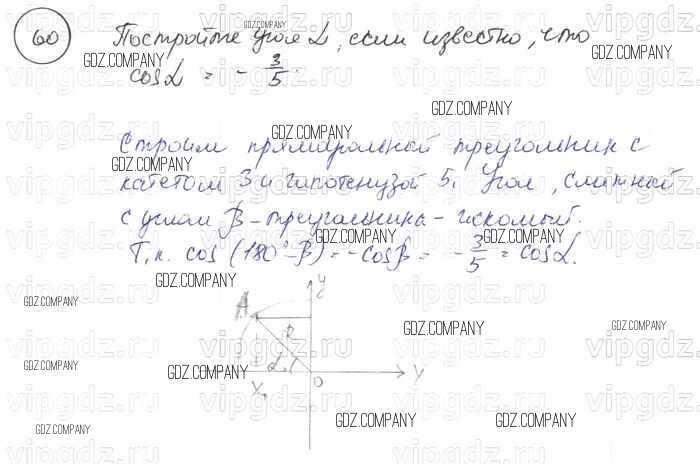 60 Постройте угол α, если известно, что
cos α = - 3/5.
Строим прямоугольный треугольник с
катетом 3 и гипотенузой 5. Угол, смежный
с углом β - треугольника - искомый.
Т.к. cos (180° - β) = - cos β = - 3/5 = cos α.
y
A
R
α
O
X₁
GDZ.COMPANY
GDZ.COMPANY
GDZ.COMPANY
GDZ.COMPANY
GDZ.COMPANY
GDZ.COMPANY
GDZ.COMPANY
GDZ.COMPANY
GDZ.COMPANY
GDZ.COMPANY
GDZ.COMPANY
GDZ.COMPANY
GDZ.COMPANY
GDZ.COMPANY
GDZ.COMPANY
GDZ.COMPANY
GDZ.COMPANY
vipgdz.ru